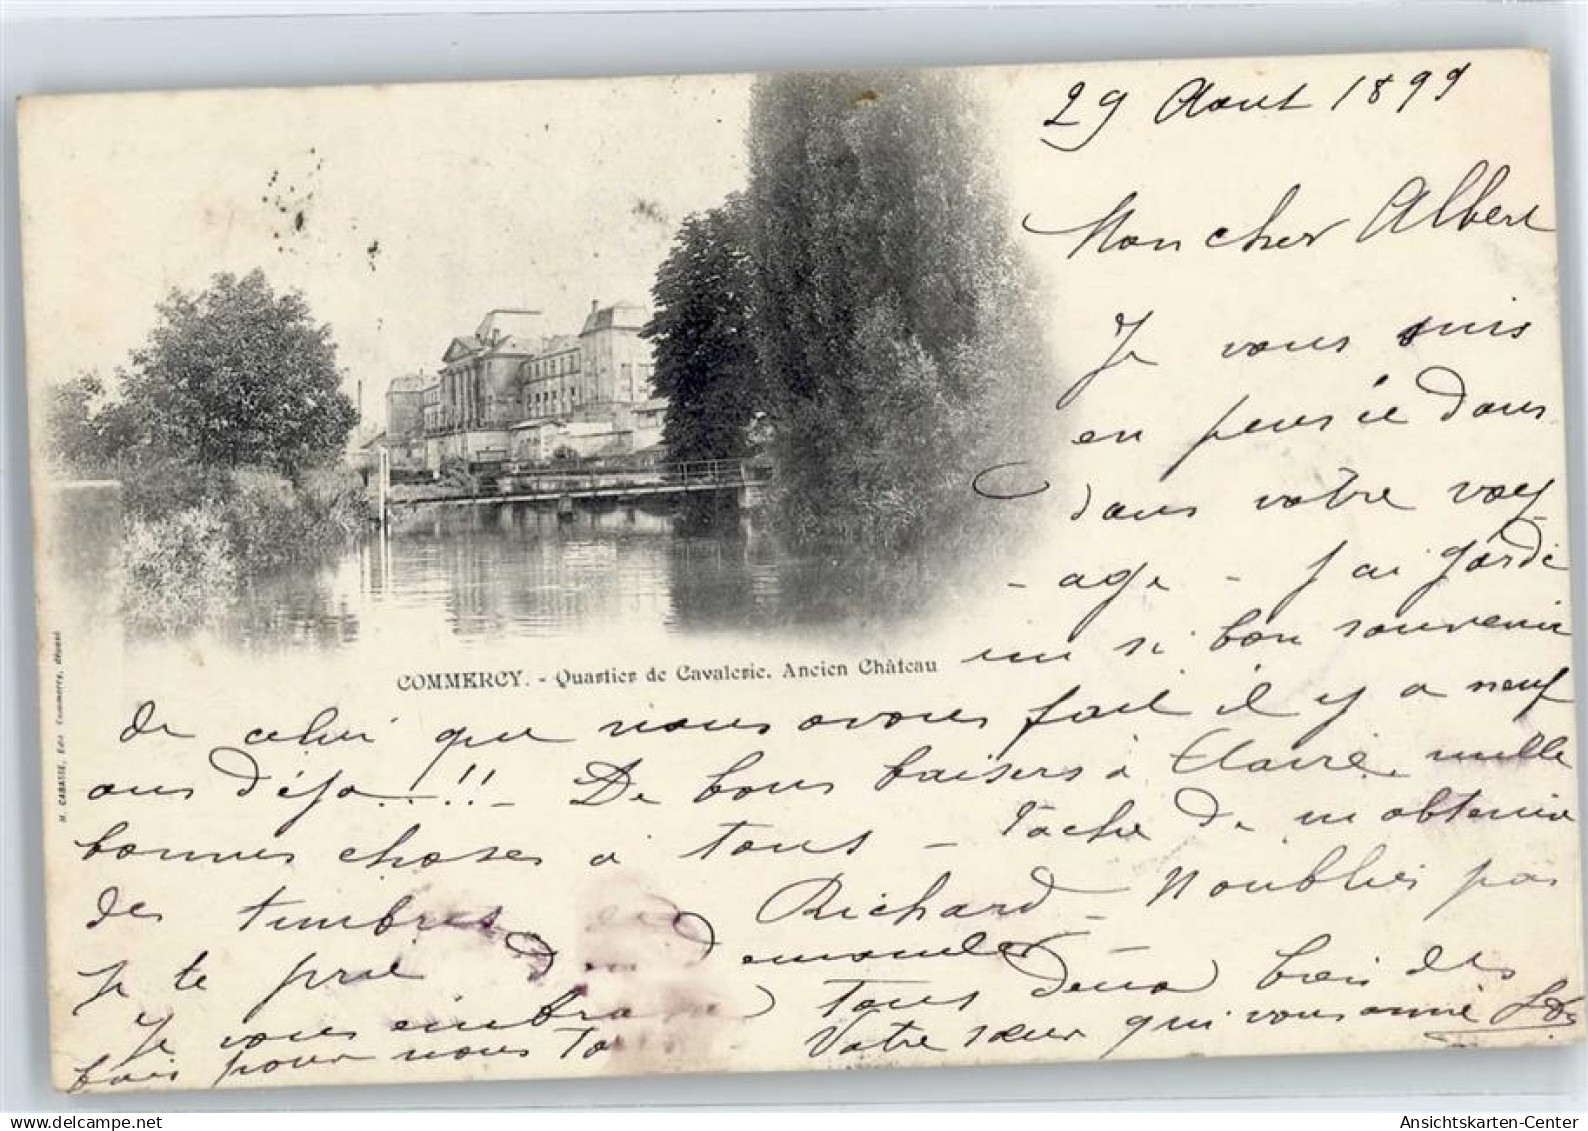 29 Aout 1899
Mon cher Albert
Je vous suis
en pensée dans
dans votre voy
- age - J'ai gardé
un si bon souvenir
COMMERCY. - Quartier de Cavalerie. Ancien Château
M. CABASSE, Edit. Commercy,
de celui que nous avons fait il y a neuf
ans déja..!!- De bons baisers à Claire, mille
bonnes choses à tous - Tache de m'obtenir
des timbres Richard - N'oublies pas
je te prie de demander
Je vous embra tous deux bien des
fois pour nous Votre sœur qui vous aime
Ansichtskarten-Center